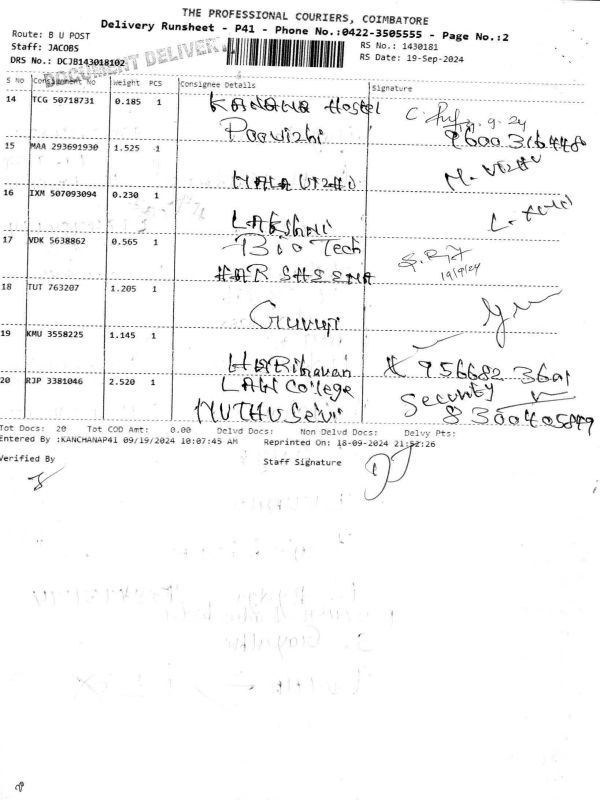 THE PROFESSIONAL COURIERS, COIMBATORE
Delivery Runsheet - P41 - Phone No.:0422-3505555 - Page No.:2
Route: B U POST
RS No.: 1430181
Staff: JACOBS
RS Date: 19-Sep-2024
DRS No.: DCJB143018102
DOCUMENT DELIVERY
S No Consignment No Weight PCS Consignee Details Signature
14 TCG 50718731 0.185 1 KANANA Hostel
Poovizhi
15 MAA 293691930 1.525 1
MALAVIZHI
16 IXM 507093094 0.230 1
LAKSHMI
17 VDK 5638862 0.565 1 Bio Tech
19/9/24
18 TUT 763207 1.205 1
Guruji
19 KMU 3558225 1.145 1
HARiharan 956682 3601
20 RJP 3381046 2.520 1 LAW College Security
MUTHU Selvi
Tot Docs: 20 Tot COD Amt: 0.00 Delvd Docs: Non Delvd Docs: Delvy Pts:
Entered By :KANCHANAP41 09/19/2024 10:07:45 AM Reprinted On: 18-09-2024 21:52:26
Verified By Staff Signature